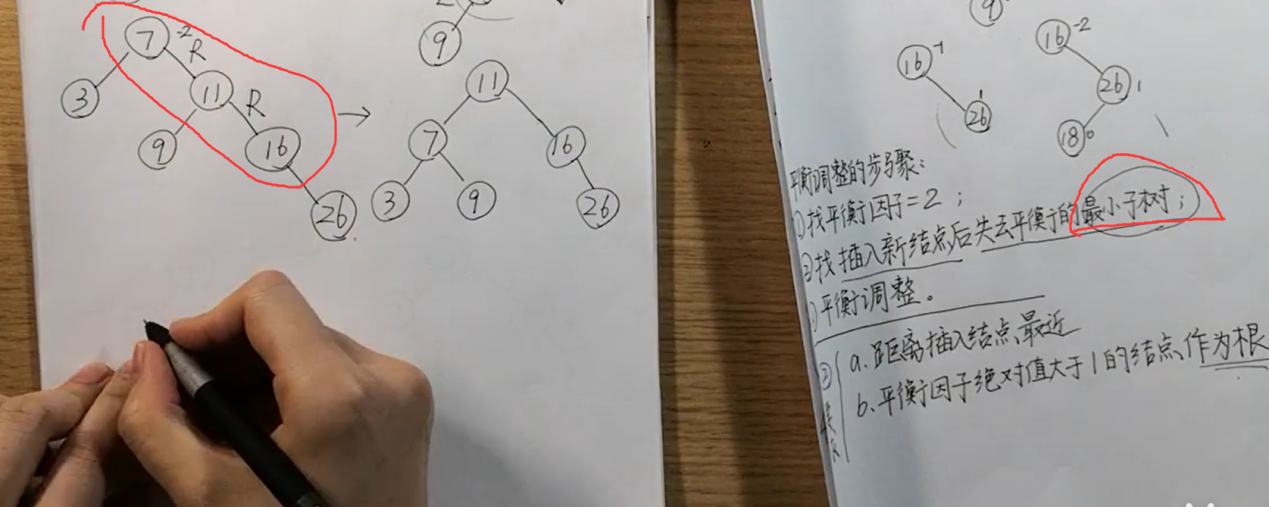 7 -2 R
3
11 R
9
16
26
9
11
7
16
3
9
26
9
16 -1
26 1
16 -2
26 1
18 0
平衡调整的步骤：
①找平衡因子=2；
②找插入新结点后失去平衡的最小子树；
平衡调整。
② a.距离插入结点最近
b.平衡因子绝对值大于1的结点作为根